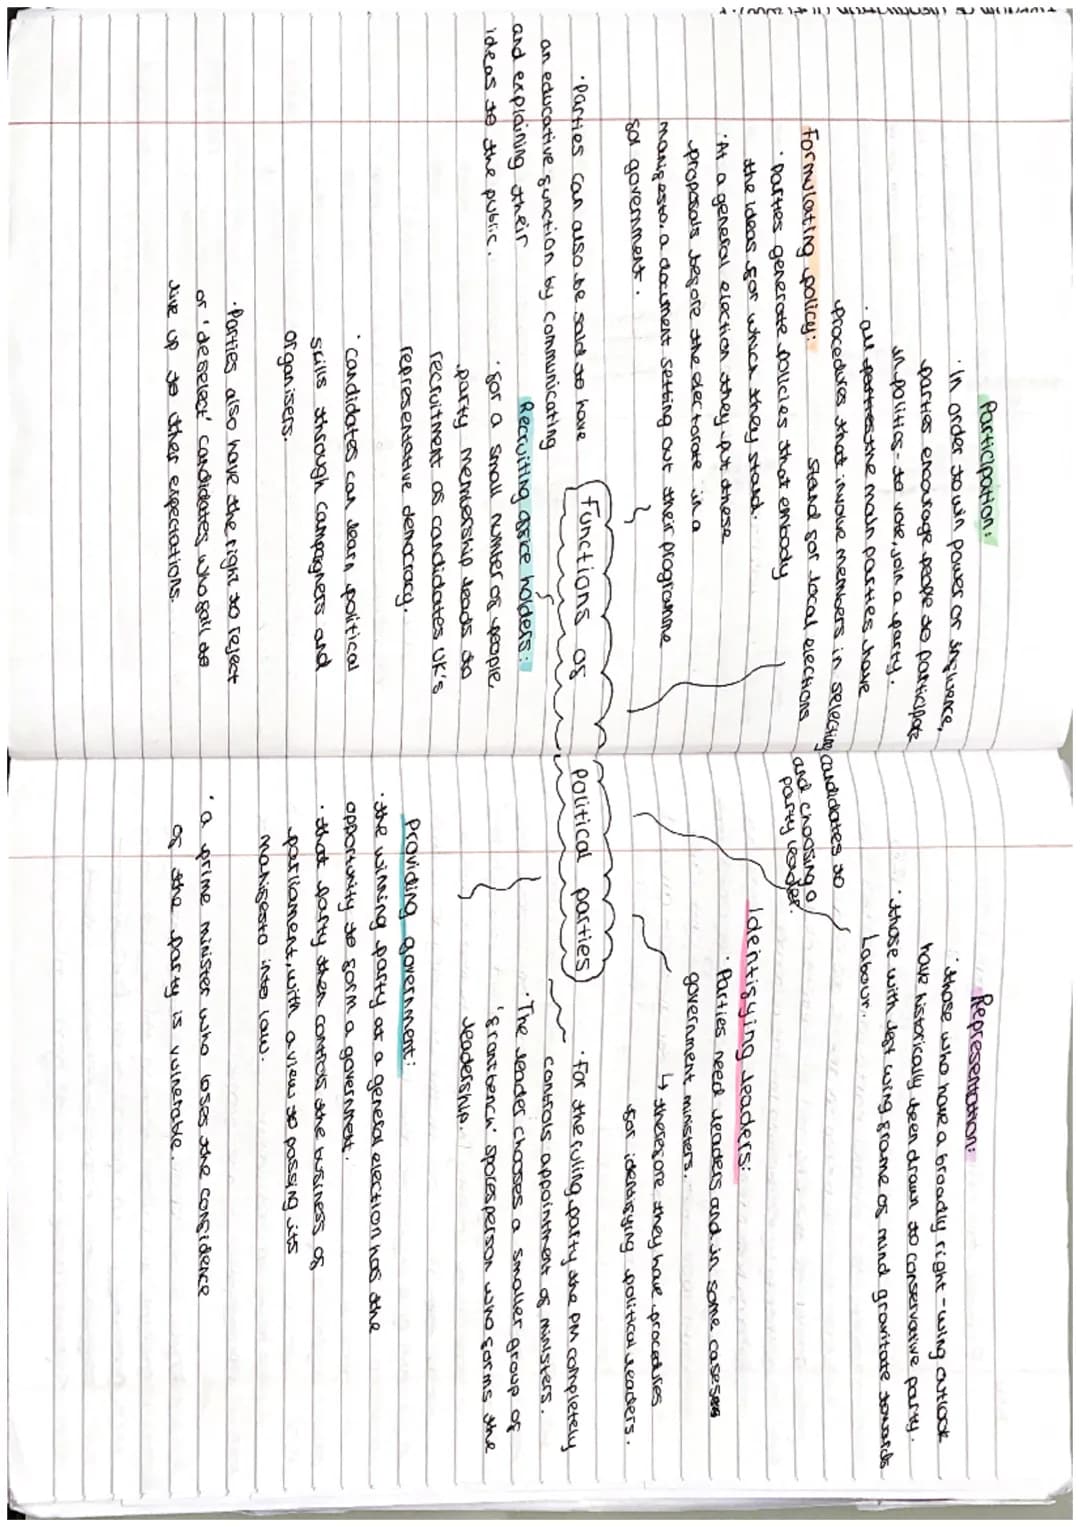 Participation:
· In order to win power or influence,
parties encourage people to participate
in politics - to vote, join a party.
· all parties the main parties have
procedures that involve members in selecting candidates to
stand for local elections and choosing a
party leader.
Formulating policy:
· Parties generate policies that embody
the ideas for which they stand.
· At a general election they put these
proposals before the electorate in a
manifesto, a document setting out their programme
for government.
· Parties can also be said to have
an educative function by communicating
and explaining their
ideas to the public.
Functions of Political parties
Recruiting office holders:
· for a small number of people,
party membership leads to
recruitment of candidates UK's
representative democracy.
· candidates can learn political
skills through campaigners and
organisers.
· Parties also have the right to reject
or 'deselect' candidates who fail to
live up to other expectations.
Representation:
· those who have a broadly right-wing outlook
have historically been drawn to conservative party.
· those with left wing frame of mind gravitate towards
Labour.
Identifying leaders:
· Parties need leaders and in some cases
government ministers.
↳ therefore they have procedures
for identifying political leaders.
· For the ruling party the PM completely
controls appointment of ministers.
· The leader chooses a smaller group of
'frontbench' spokesperson who forms the
leadership.
Providing government:
· the winning party at a general election has the
opportunity to form a government.
· that party then controls the business of
parliament, with a view to passing its
manifesto into law.
· a prime minister who loses the confidence
of the party is vulnerable.